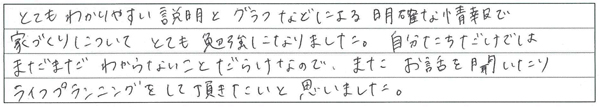 とてもわかりやすい説明とグラフなどによる明確な情報で
家づくりについてとても勉強になりました。自分たちだけでは
まだまだわからないことだらけなので、またお話を聞いたり
ライフプランニングをして頂きたいと思いました。